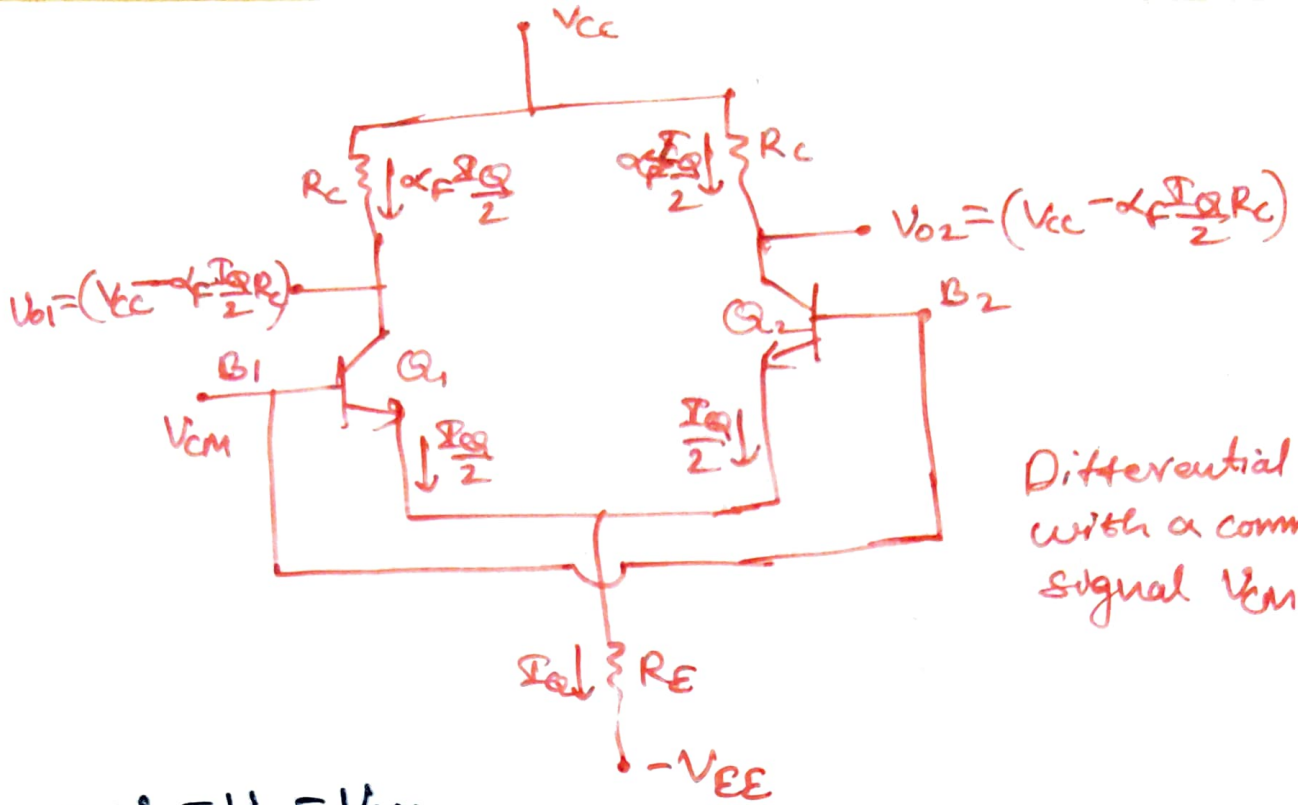 VCC
RC
αF IQ/2
αF IQ/2
RC
VO2=(VCC-αF IQ/2 RC)
VO1=(VCC-αF IQ/2 RC)
B1
Q1
Q2
B2
VCM
IQ/2
IQ/2
Differential
with a comm
signal VCM
IQ
RE
-VEE